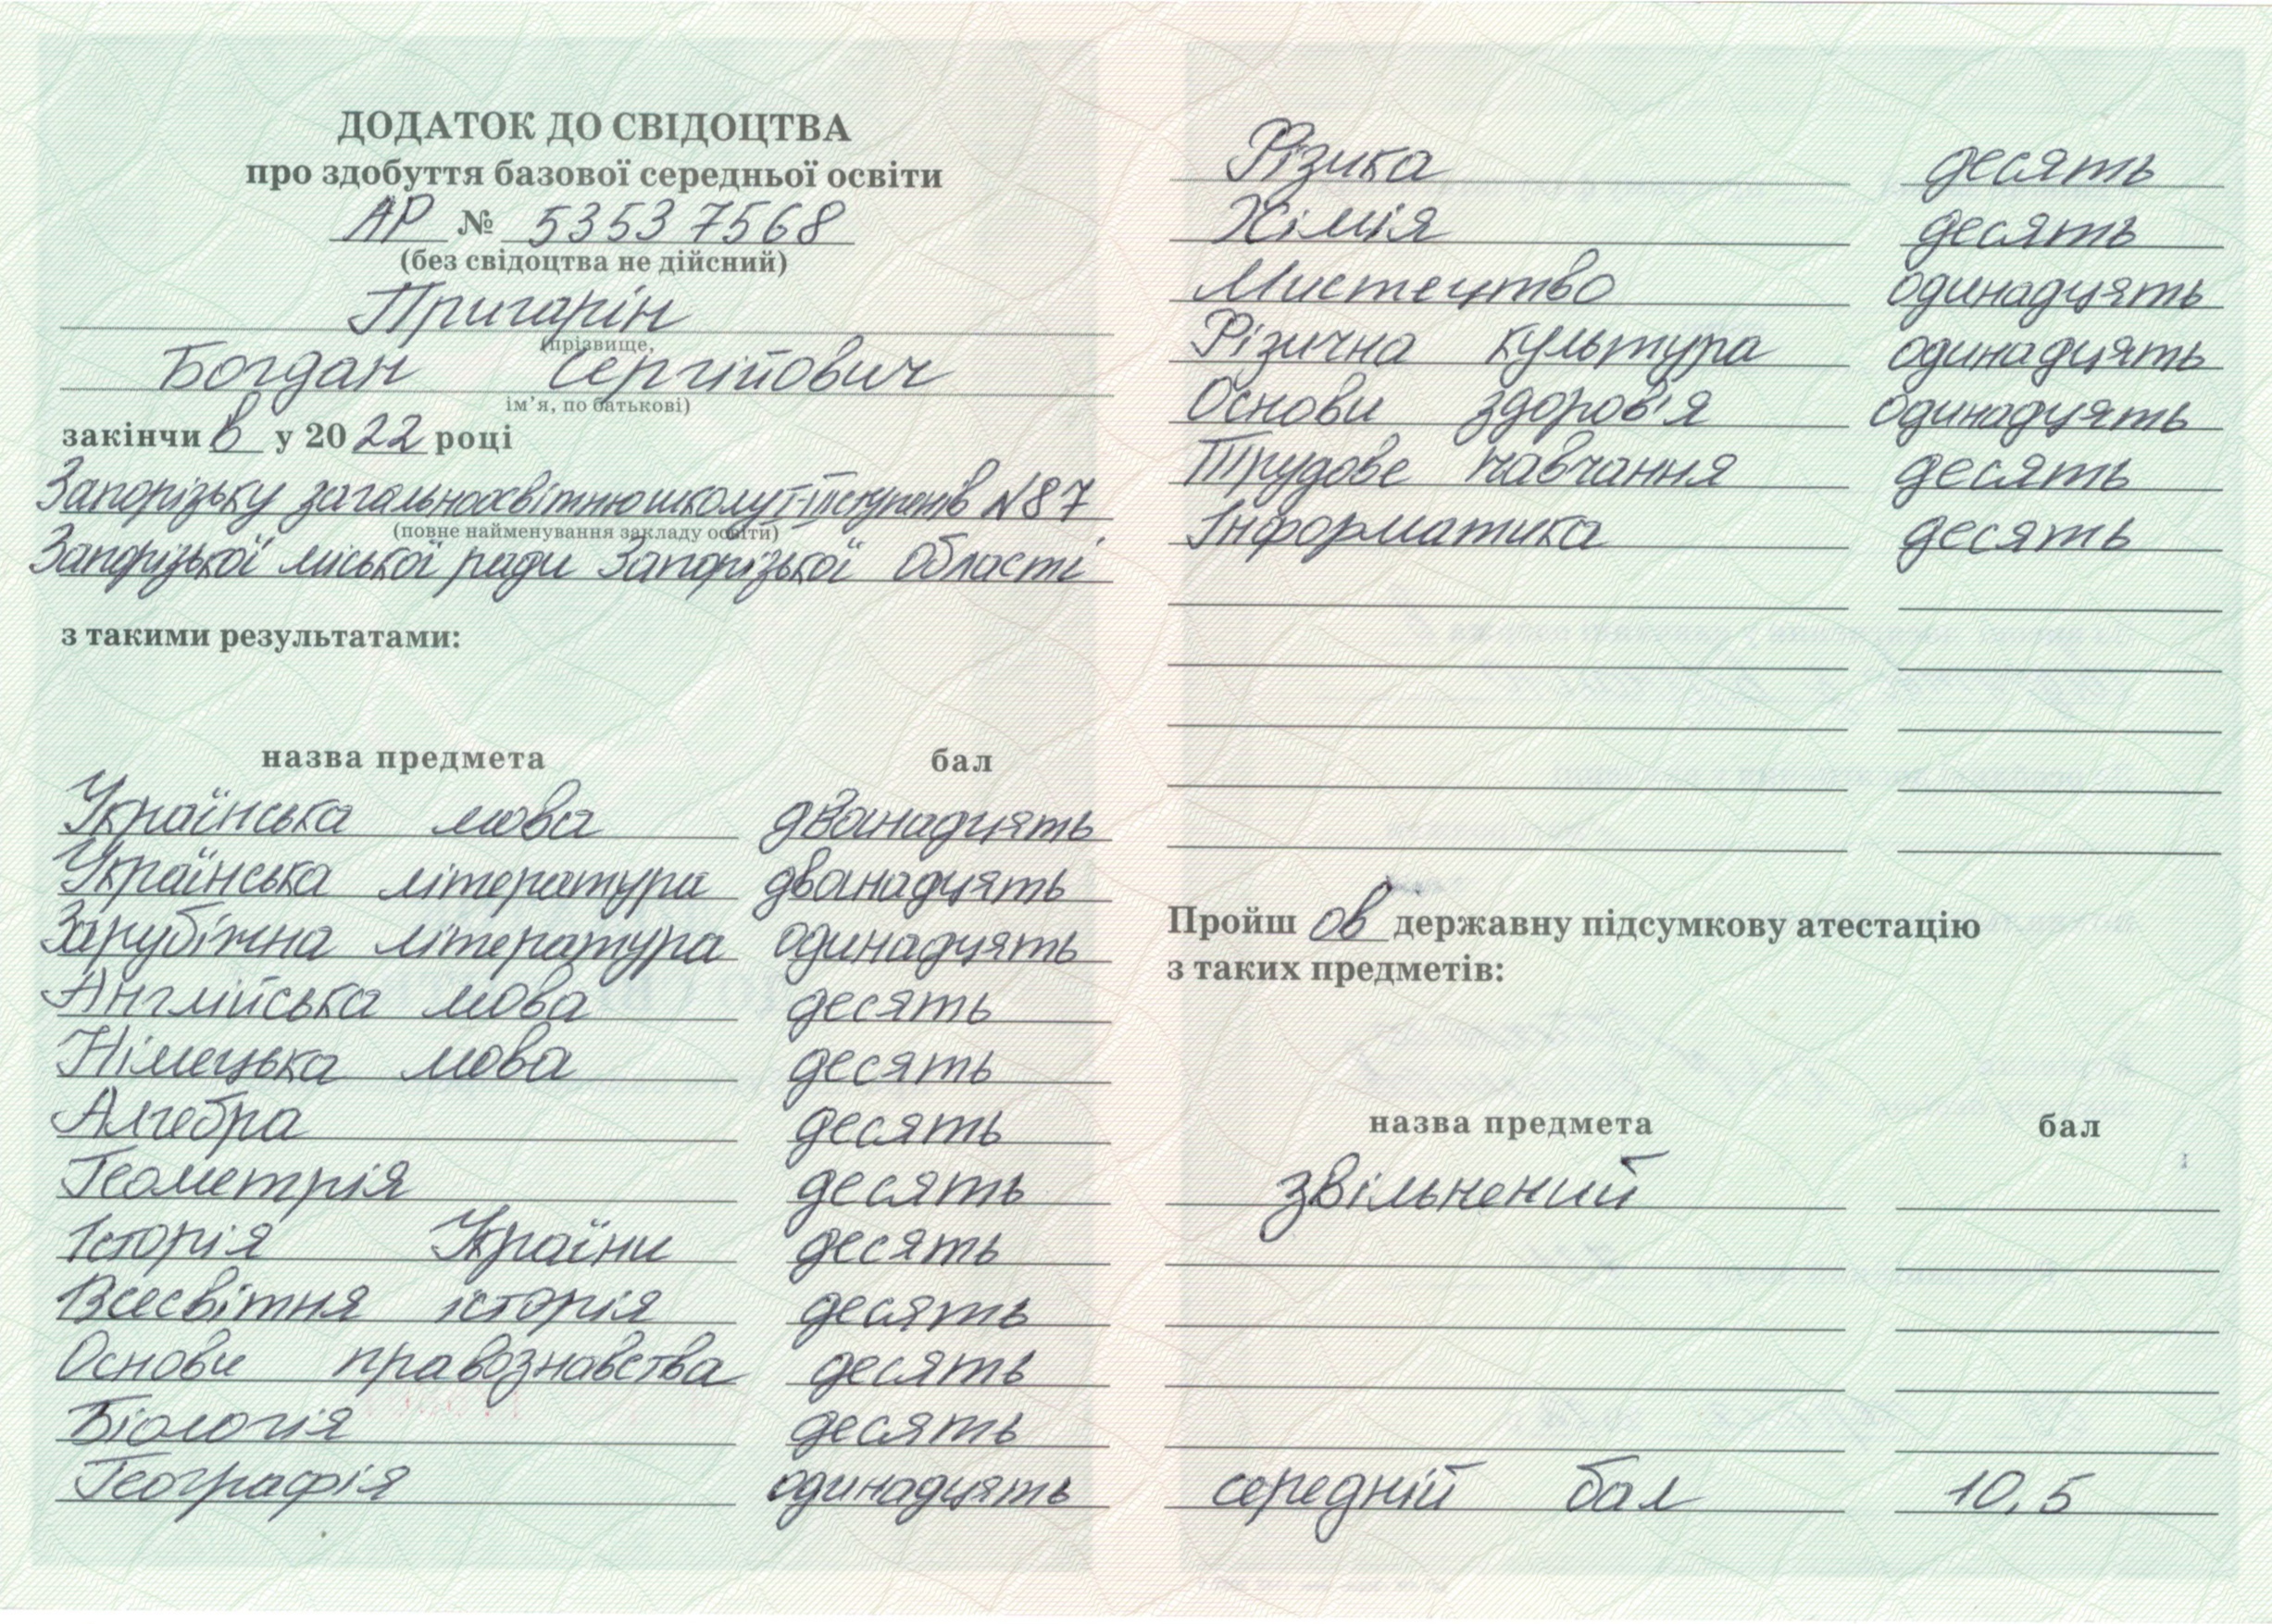 ДОДАТОК ДО СВІДОЦТВА
про здобуття базової середньої освіти
АР № 53537568
(без свідоцтва не дійсний)
Пригарін
(прізвище,
Богдан Сергійович
ім’я, по батькові)
закінчив у 2022 році
Запорізьку загальноосвітню школу І-ІІІ ступенів №87
(повне найменування закладу освіти)
Запорізької міської ради Запорізької області
з такими результатами:
назва предмета бал
Українська мова дванадцять
Українська література дванадцять
Зарубіжна література одинадцять
Англійська мова десять
Німецька мова десять
Алгебра десять
Геометрія десять
Історія України десять
Всесвітня історія десять
Основи правознавства десять
Біологія десять
Географія одинадцять
Фізика десять
Хімія десять
Мистецтво одинадцять
Фізична культура одинадцять
Основи здоров'я одинадцять
Трудове навчання десять
Інформатика десять
Пройшов державну підсумкову атестацію
з таких предметів:
назва предмета бал
звільнений
середній бал 10,5